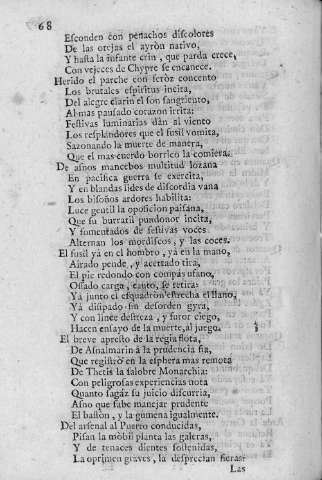 68
Esconden con penachos discolores
De las orejas el ayron nativo,
Y hasta la infante crin, que parda crece,
Con vejeces de Chypre se encanece.
Herido el parche con feròz concento
Los brutales espiritus incita,
Del alegre clarin el son sangriento,
Al mas pausado corazon irrita:
Festivas luminarias dàn al viento
Los resplandores que el fusil vomita,
Sazonando la muerte de manera,
Que el mas cuerdo borrico la comiera.
De asnos mancebos multitud lozana
En pacifica guerra se exercita,
Y en blandas lides de discordia vana
Los bisoños ardores habilita:
Luce gentil la oposicion paisana,
Que su burratil pundonor incita,
Y fomentados de festivas voces
Alternan los mordiscos, y las coces.
El fusil yà en el hombro, yà en la mano,
Airado pende, y acertado tira,
El pie redondo con compás ufano,
Ossado carga, cauto, se retira:
Yà junto el esquadron estrecha el llano,
Yà disipado sin desorden gyra,
Y con linda destreza, y furor ciego,
Hacen ensayo de la muerte, al juego.
El breve apresto de la regia flota,
De Asnalmarin à la prudencia fia,
Que registrò en la esphera mas remota
De Thetis la salobre Monarchìa:
Con peligrosas experiencias nota
Quanto sagàz su juicio discurria,
Asno que sabe manejar prudente
El bastòn, y la gumena igualmente.
Del arsenal al Puerto conducidas,
Pisan la mòbil planta las galeras,
Y de tenaces dientes sostenidas,
La oprimen graves, la desprecian fieras:
Las